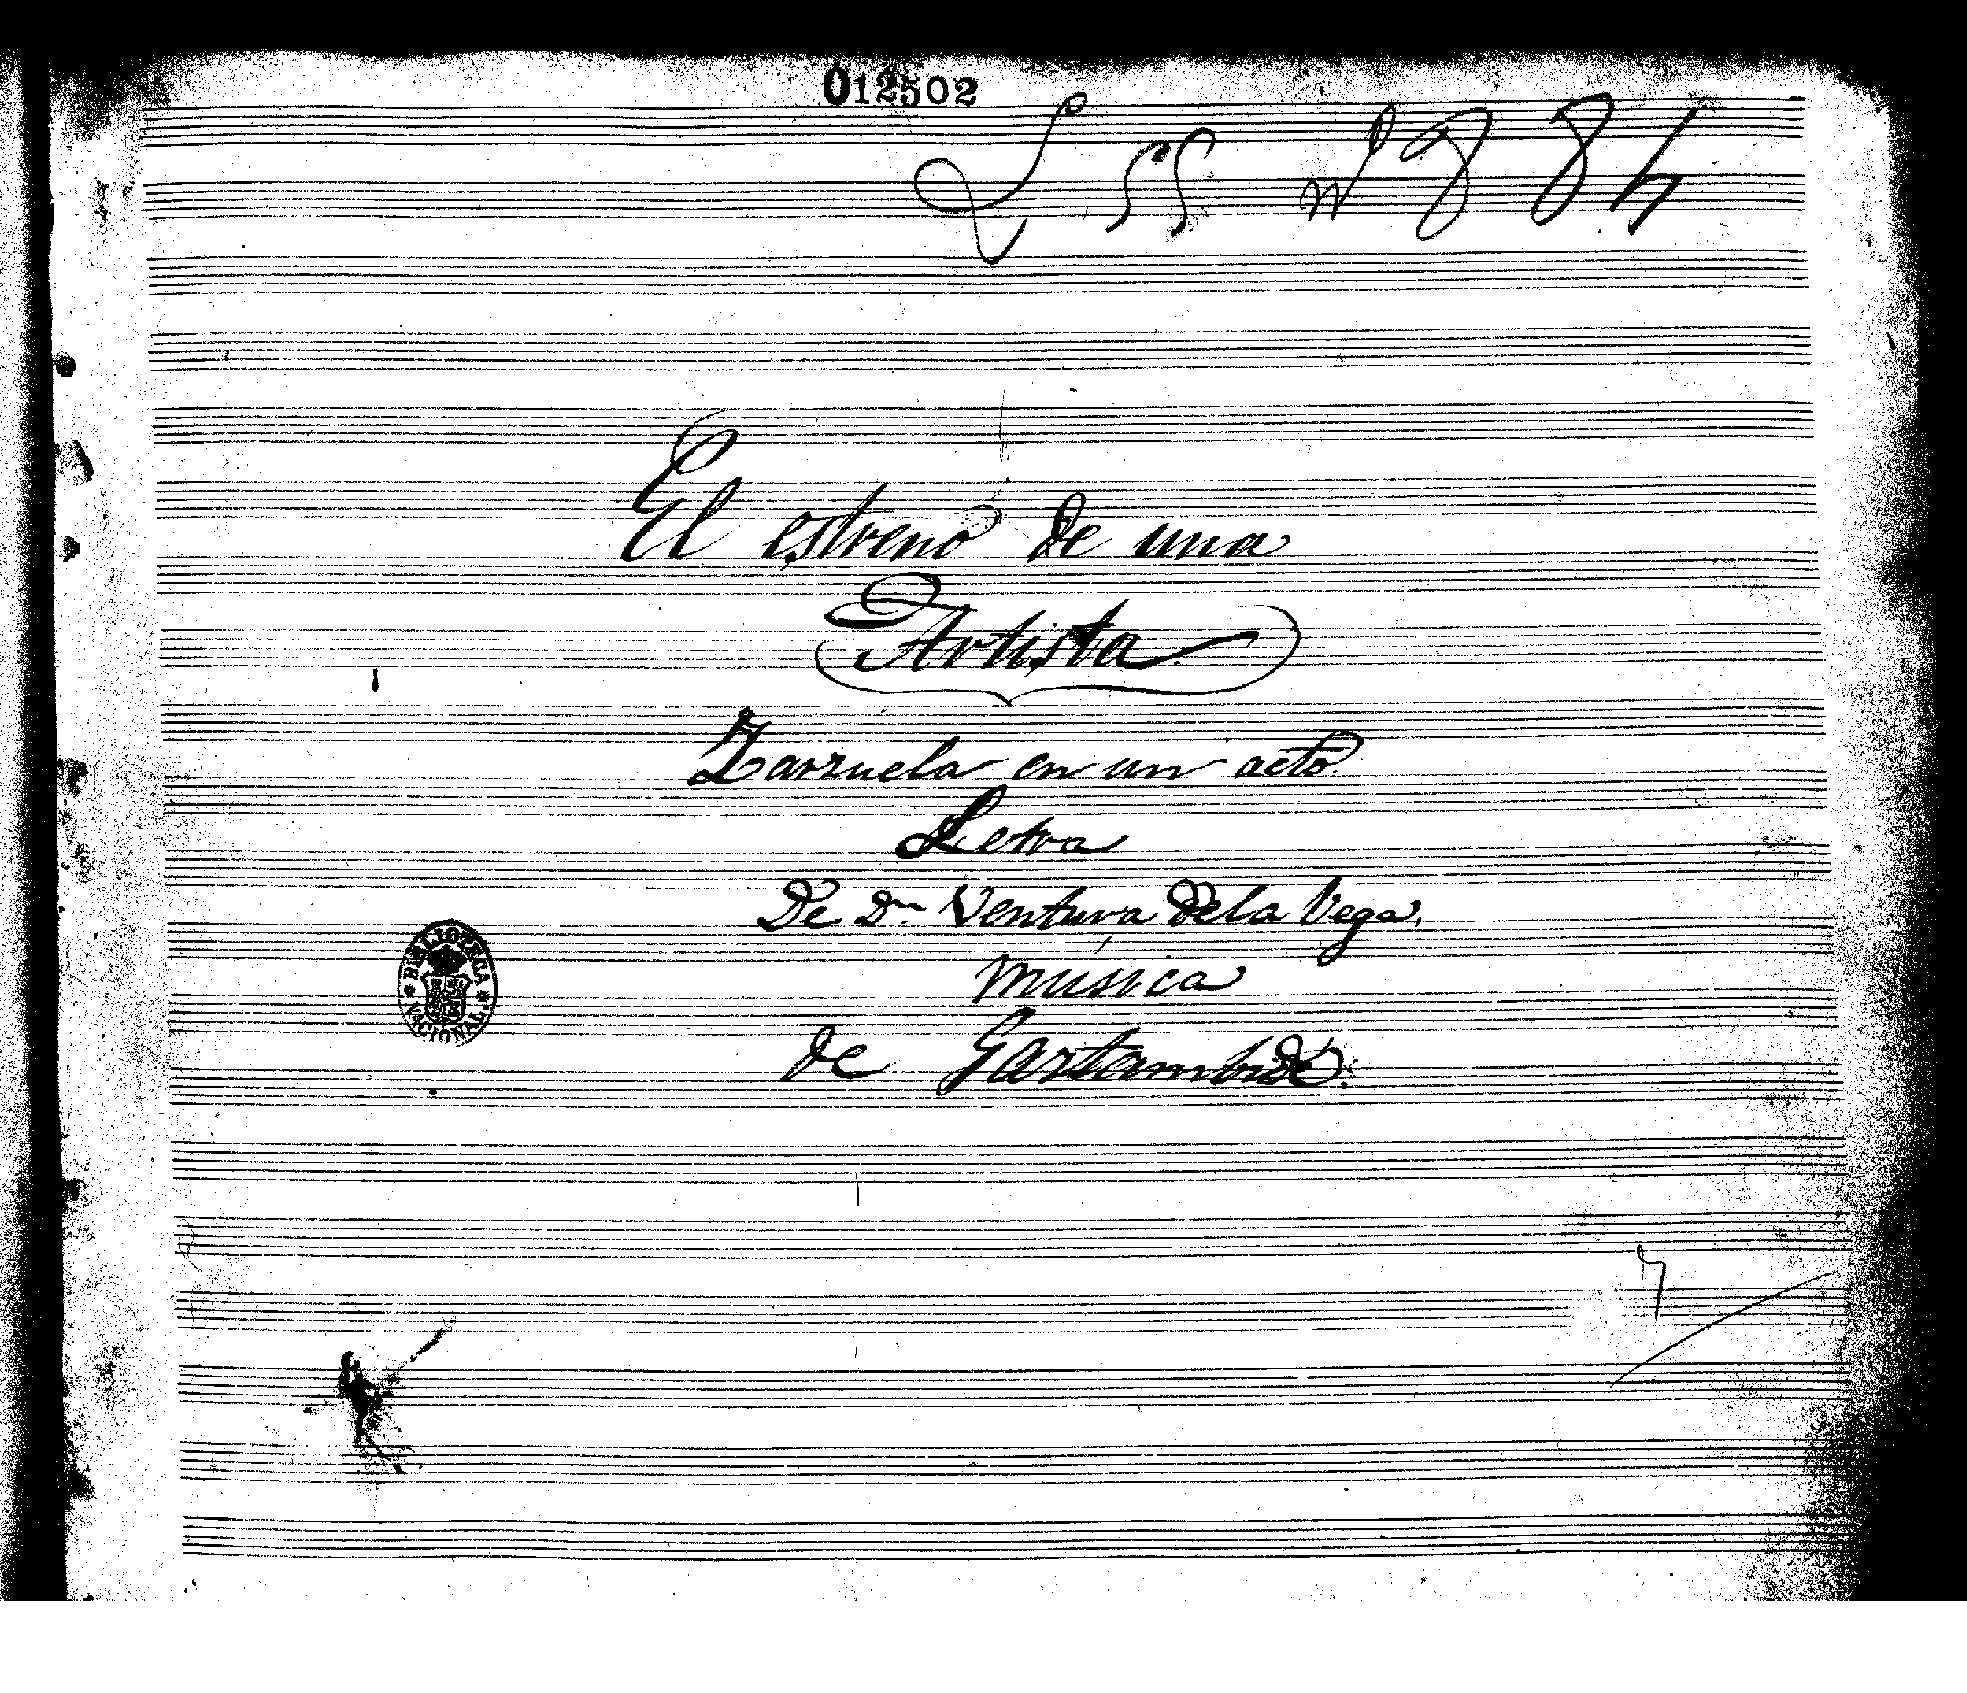 012502
L 55 nº 884
El estreno de una
Artista
Zarzuela en un acto.
Letra
De Dn Ventura dela Vega.
Música
de Gaztambide.
BIBLIOTECA NACIONAL